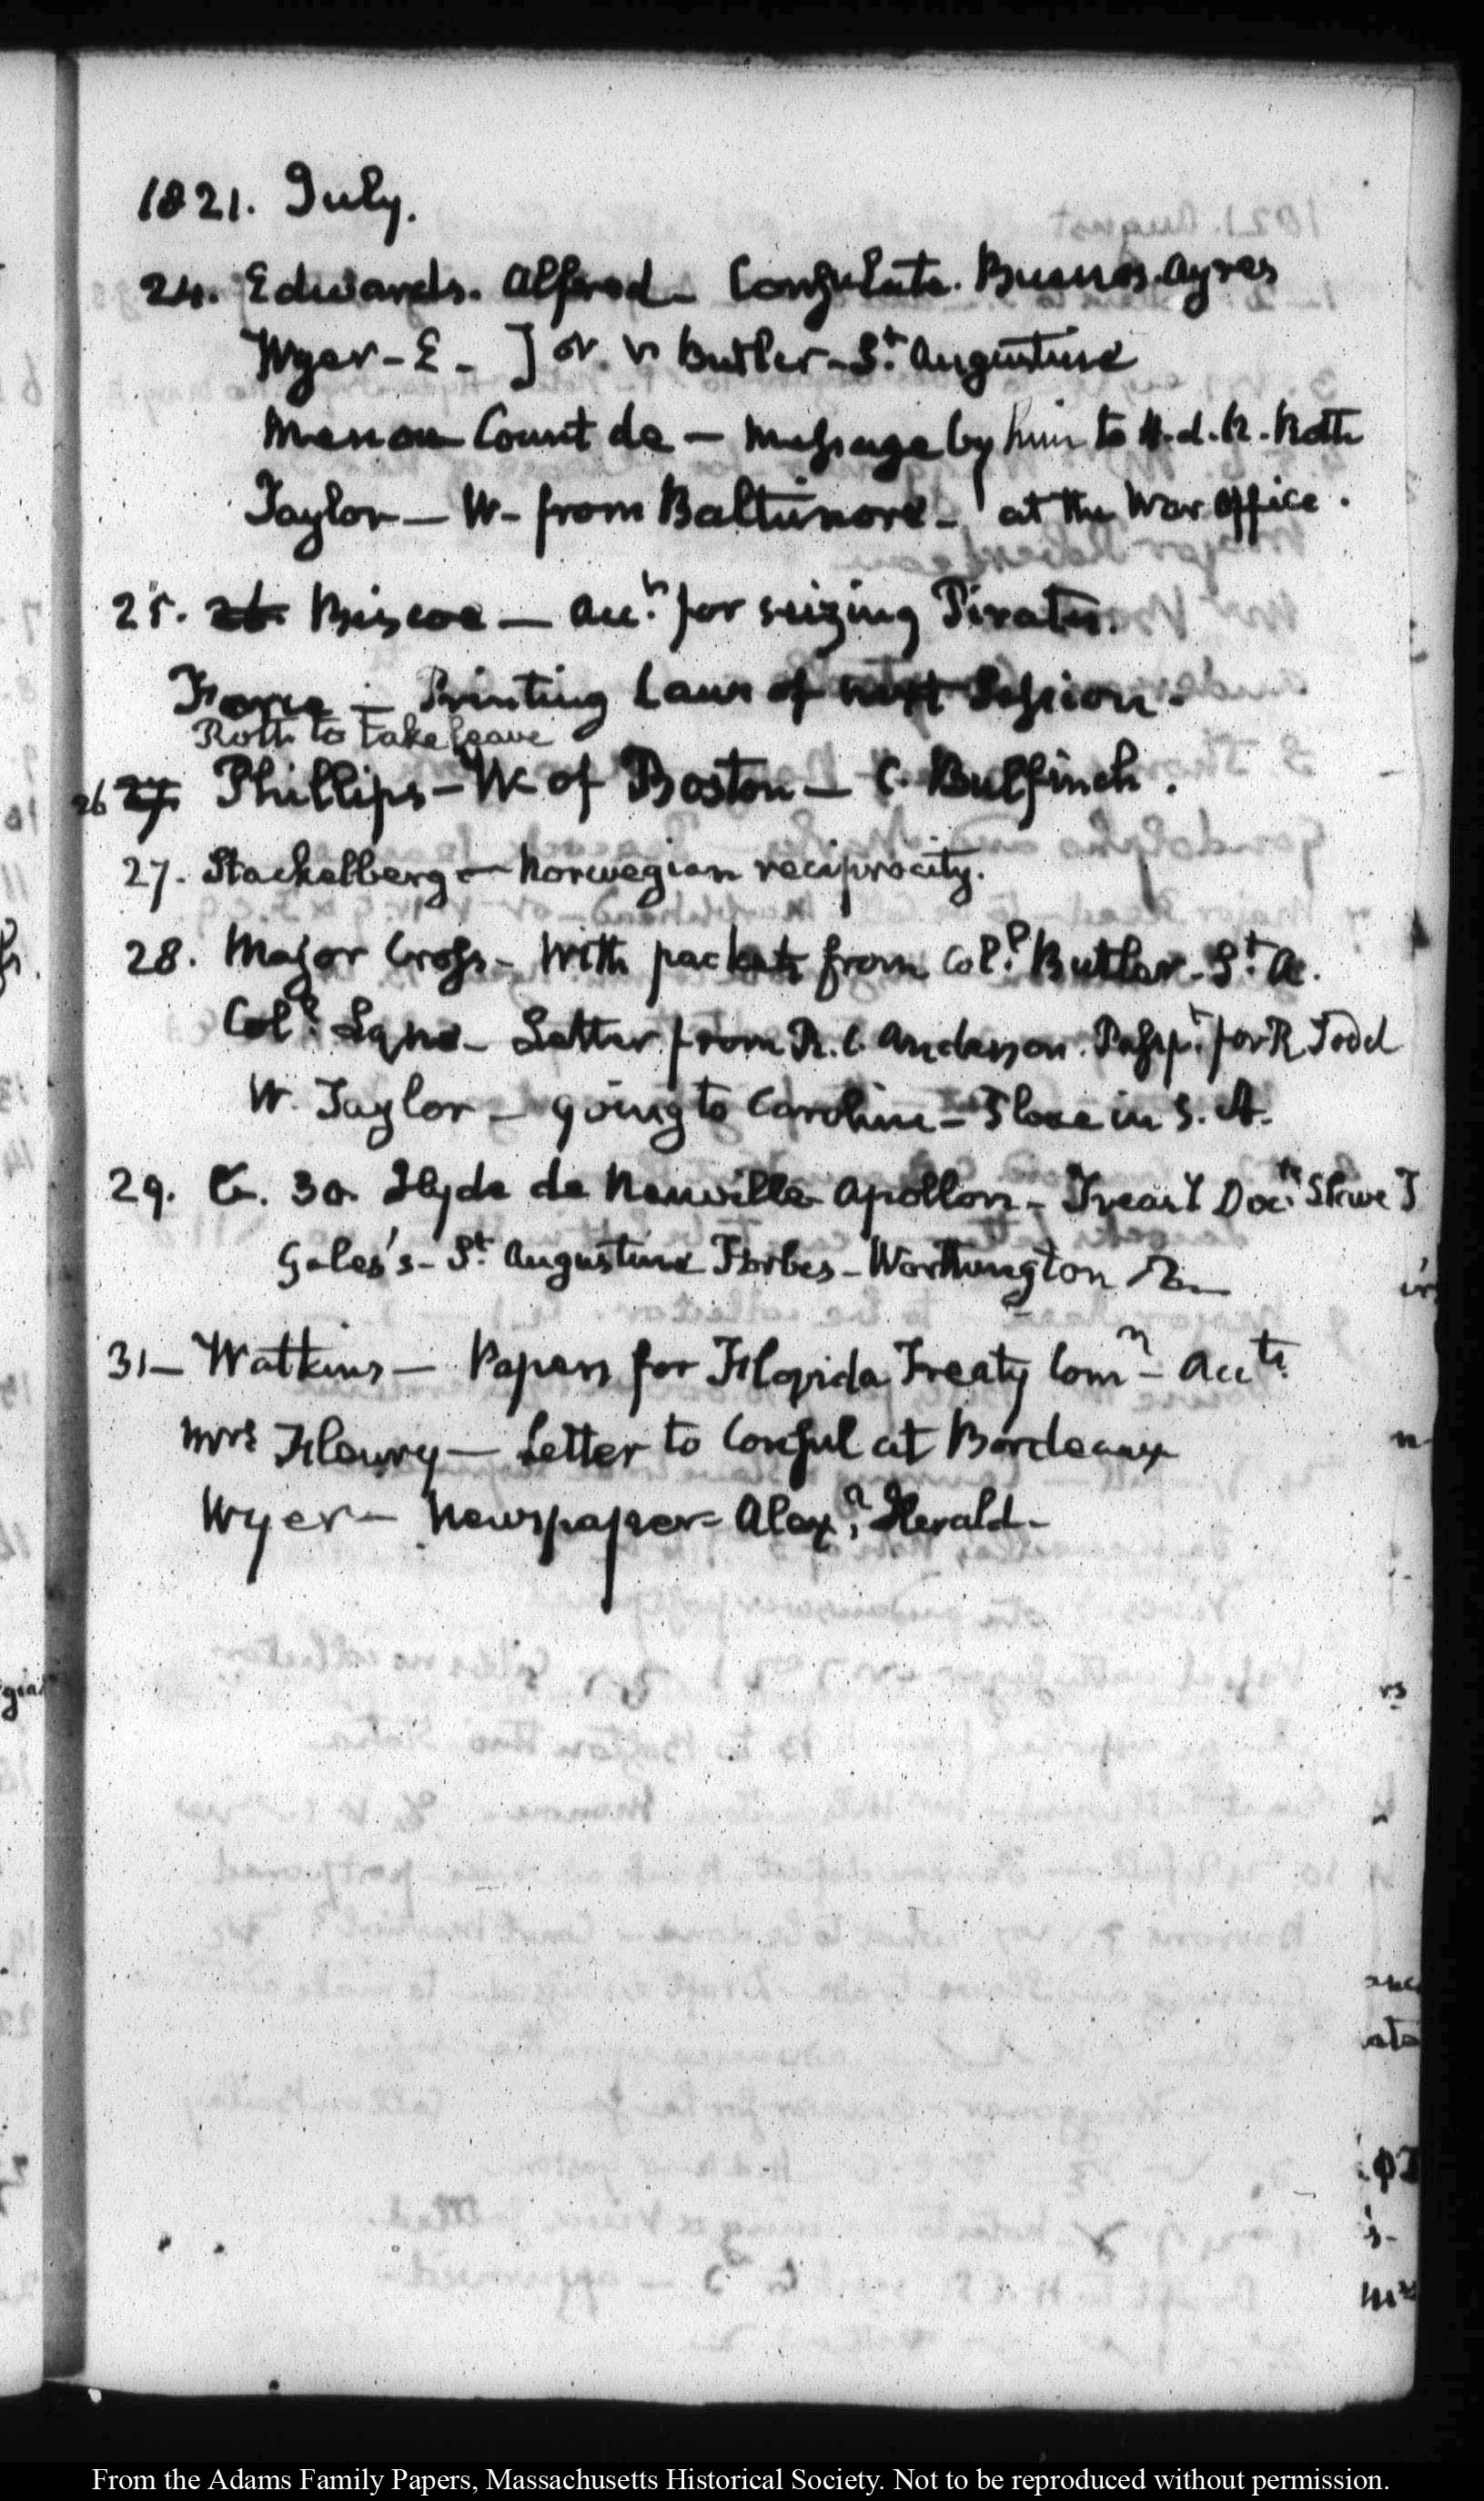 1821. July.
24. Edwards. Alfred - Consulate. Buenos Ayres
Wyer - E - ] Butler - St. Augustine
Menou Count de - Message by him to H. d. N. Roth
Taylor - W - from Baltimore - at the War Office.
25. 26 Biscoe - for seizing Pirates.
Force - Printing Laws of next Session -
Roth to take leave
26 27 Phillips - W of Boston - C. Bulfinch.
27. Stackelberg - Norwegian reciprocity.
28. Major Cross - With packets from Coll. Butler - St. A.
Coll. Lyne - Letter from R. C. Anderson. Passpt. for R Todd
W. Taylor - going to Caroline - Slave in S. A.
29. & 30 Hyde de Neuville Apollon - Slave T
St. Augustine Forbes - Worthington
31 - Watkins - Papers for Florida Treaty Comn - Accts.
Mrs Fleury - Letter to Consul at Bordeaux
Wyer - Newspaper - Alexa. Herald -
From the Adams Family Papers, Massachusetts Historical Society. Not to be reproduced without permission.